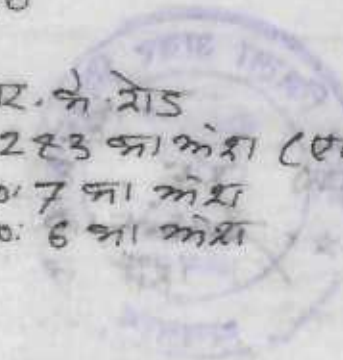 र. के. रोड
273 का अंश (ए
0: 7 का अंश
0: 6 का अंश